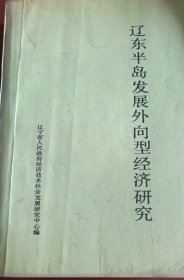 辽东半岛发展外向型经济研究
辽宁省人民政府经济技术社会发展研究中心编